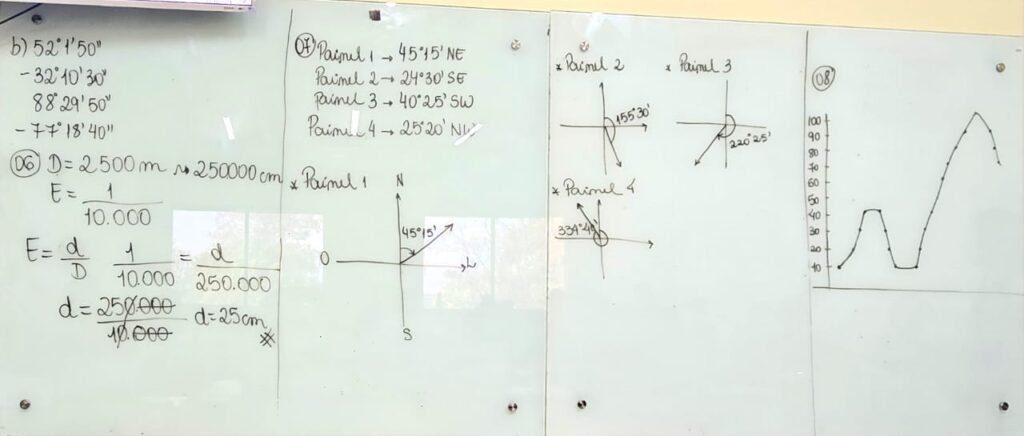 b) 52°1'50"
- 32°10'30"
88°29'50"
- 77°18'40"
06 D = 2500 m ⇝ 250000 cm
E = 1
10.000
E = d 1 = d
D 10.000 250.000
d = 250.000 d = 25cm
10.000
07 Painel 1 → 45°15' NE
Painel 2 → 24°30' SE
Painel 3 → 40°25' SW
Painel 4 → 25°20' NW
* Painel 1
N
45°15'
O
L
S
* Painel 2
155°30'
* Painel 3
220°25'
* Painel 4
08
100
90
80
70
60
50
40
30
20
10